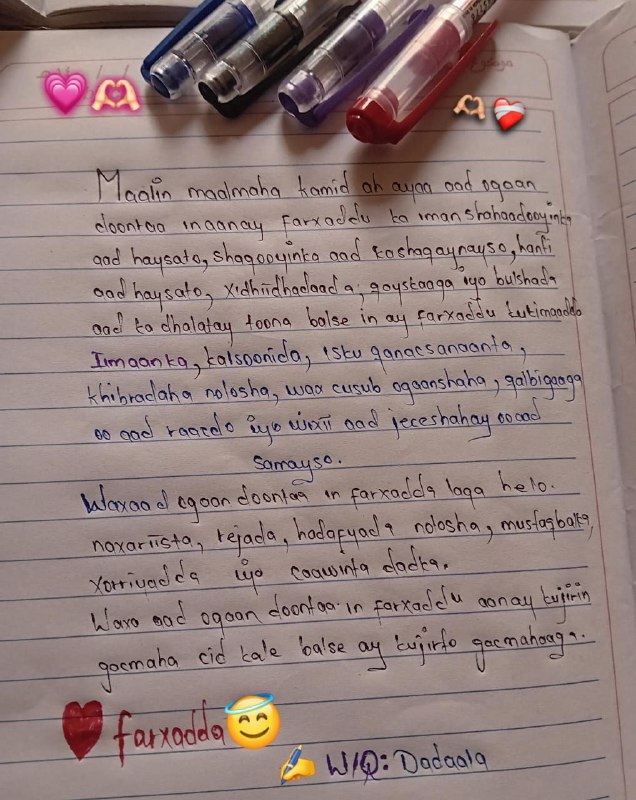 Maalin maalmaha kamid ah ayaa aad ogaan
doontaa inaanay farxaddu ka iman shahaadooyinka
aad haysato, shaqooyinka aad kashaqaynayso, hanti
aad haysato, xidhiidhadaada, qoyskaaga iyo bulshada
aad ka dhalatay toona balse in ay farxaddu kutimaaddo
Iimaanka, kalsoonida, isku qanacsanaanta,
khibradaha nolosha, wax cusub ogaanshaha, qalbigaaga
oo aad raacdo iyo wixii aad jeceshahay oo aad
samayso.
Waxaad ogaan doontaa in farxadda laga helo.
naxariista, rejada, hadafyada nolosha, mustaqbalka,
xorriyadda iyo caawinta dadka.
Waxa aad ogaan doontaa in farxaddu aanay kujirin
gacmaha cid kale balse ay kujirto gacmahaaga.
farxadda
W/Q: Dadaala